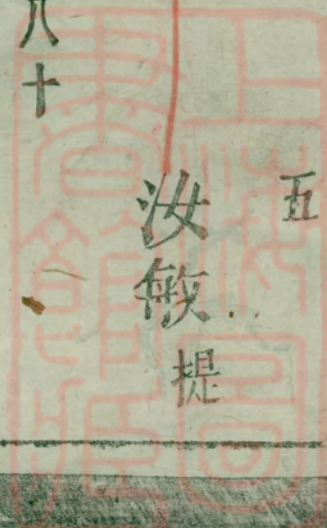 五
汝敏提
八十